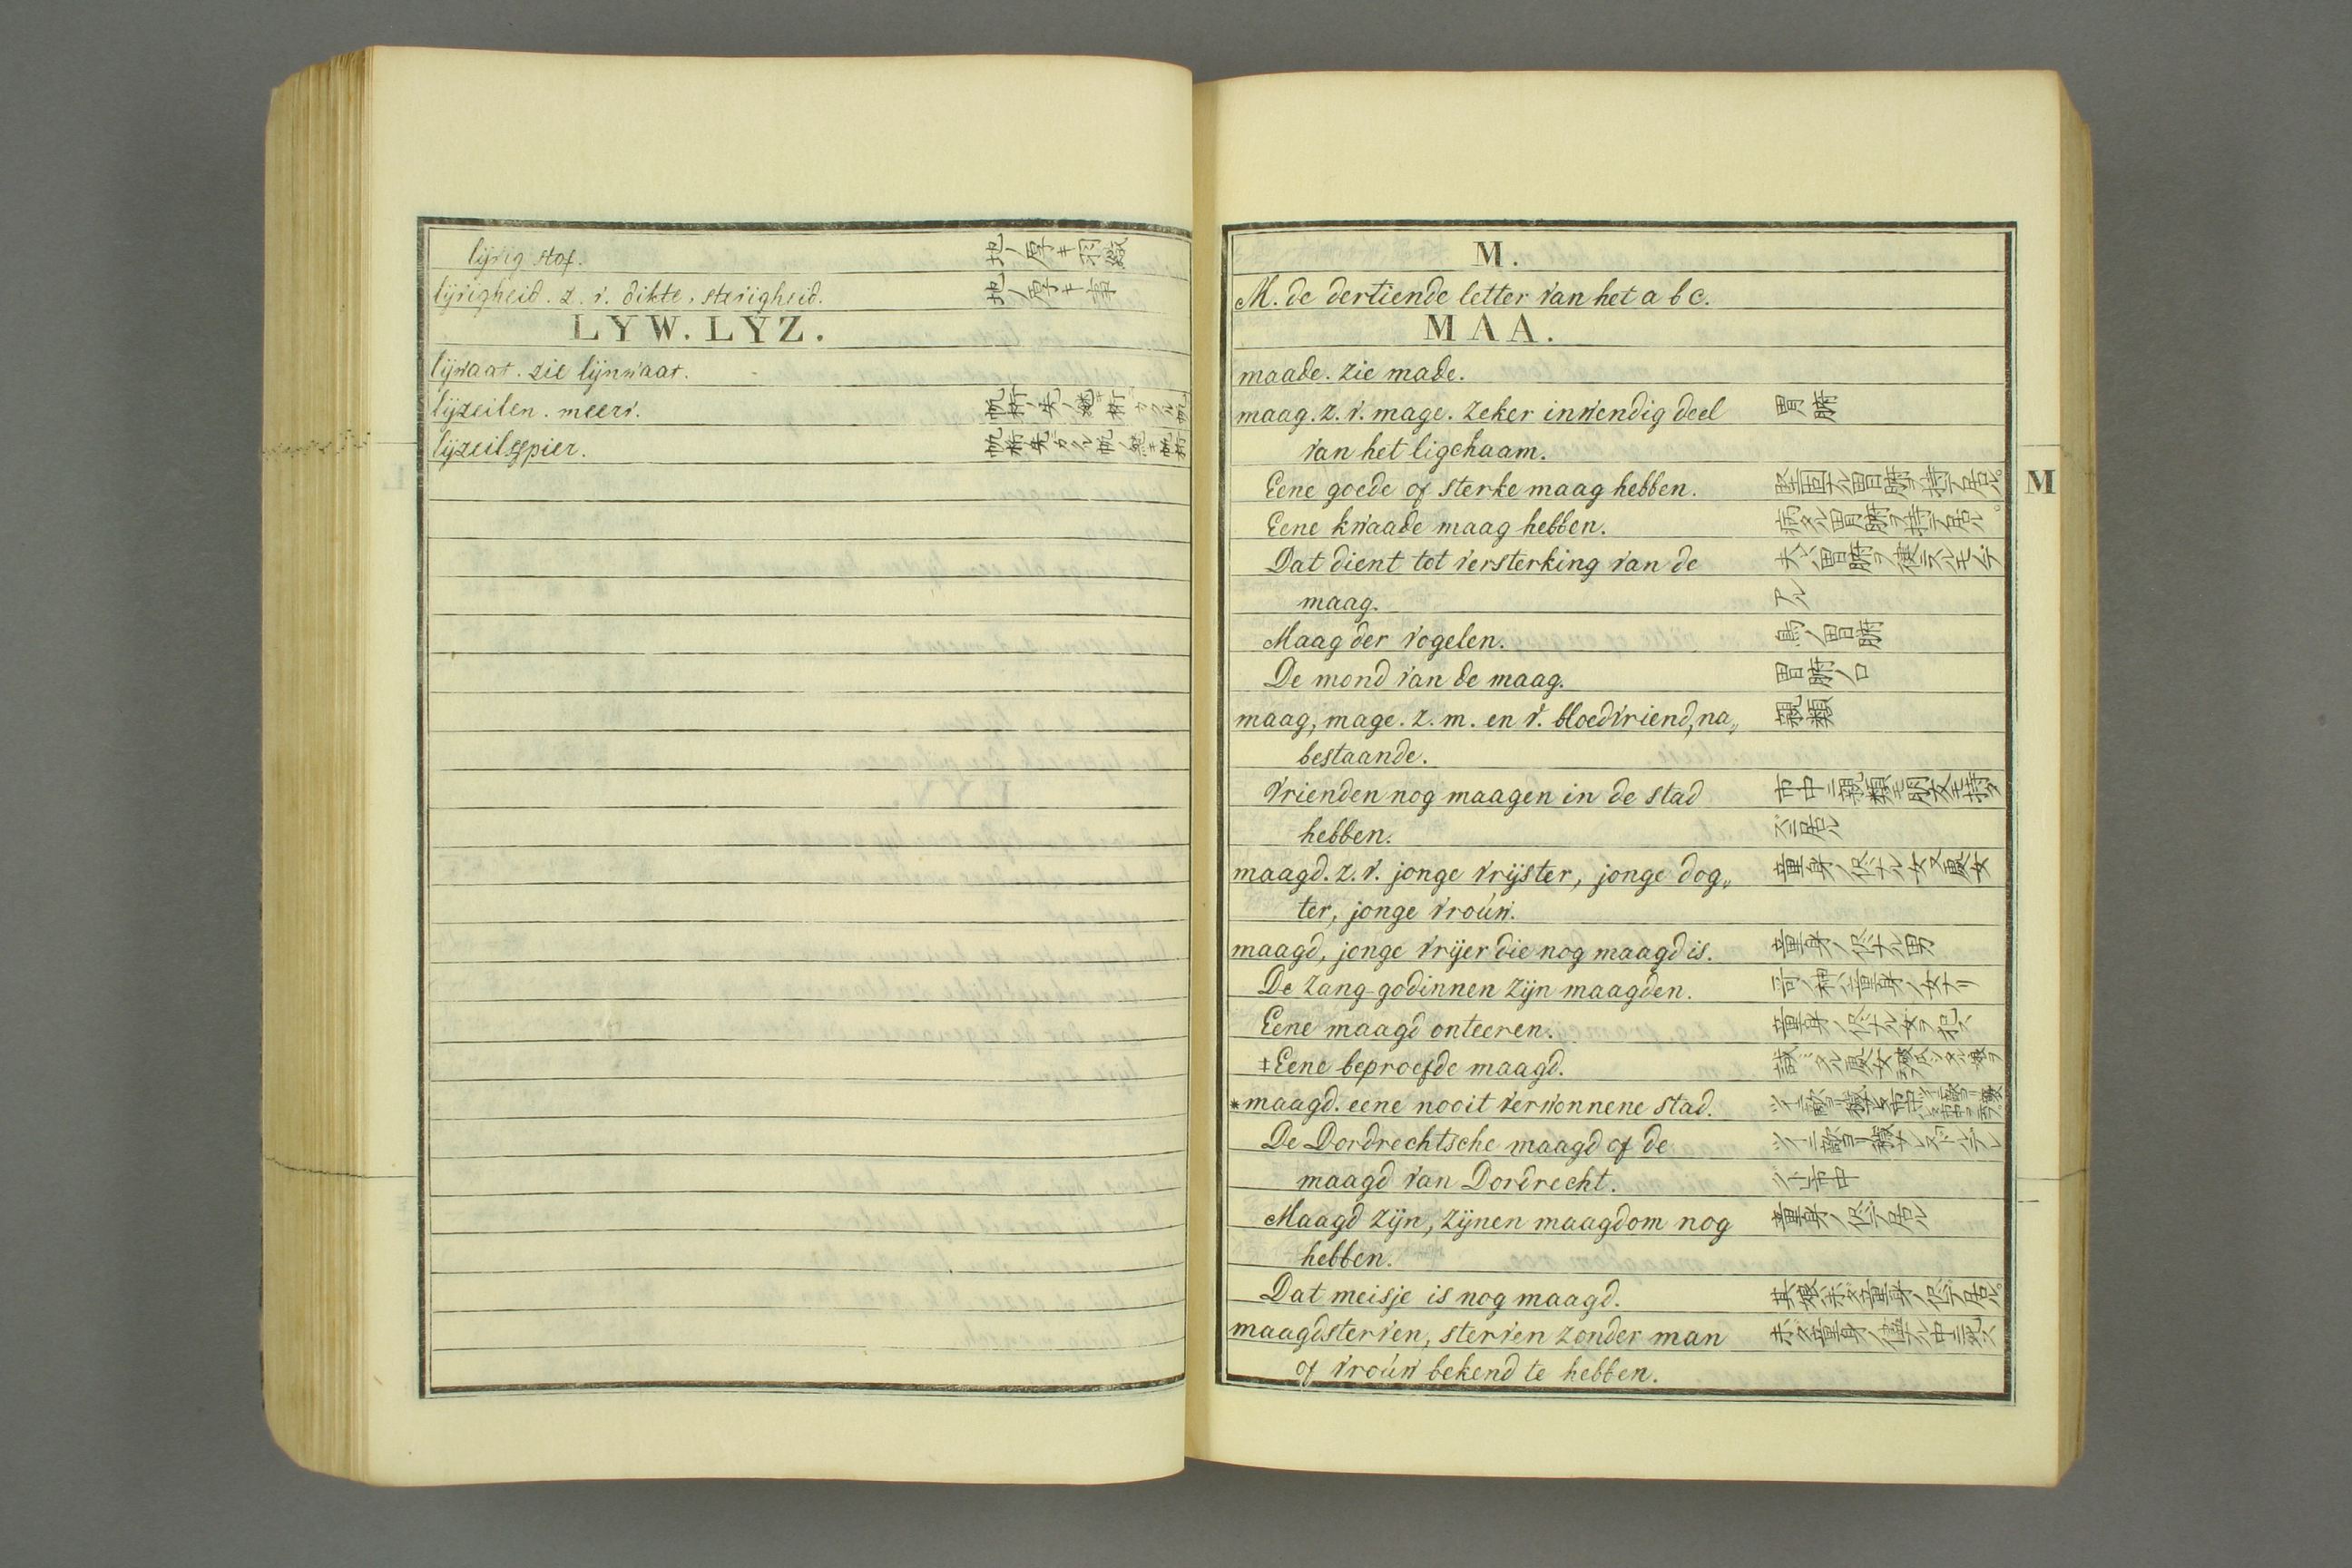 lijvig stof. 地ノ厚キ羽緞
lijvigheid. z. v. dikte, stevigheid. 地ノ厚キ事
LYW. LYZ.
lijwaat. zie lijnwaat.
lijzeilen. meerv.
lijzeilsspier.
M.
M. de dertiende letter van het a b c.
MAA.
maade. zie made.
maag. z. v. mage. zeker inwendig deel 胃腑
van het ligchaam.
Eene goede of sterke maag hebben. 堅固ナル胃腑ヲ持テ居ル。
Eene kwaade maag hebben. 病タル胃腑ヲ持テ居ル。
Dat dient tot versterking van de 夫ハ胃腑ヲ健ニスルモノデ
maag. アル
Maag der vogelen. 鳥ノ胃腑
De mond van de maag. 胃腑ノ口
maag, mage. z. m. en v. bloedvriend, na„ 親類
bestaande.
Vrienden nog maagen in de stad 市中ニ親類モ朋友モ持タ
hebben. ズニ居ル
maagd. z. v. jonge vrijster, jonge dog„ 童身ノ侭ナル女又處女
ter, jonge vroúw.
maagd, jonge vrijer die nog maagd is. 童身ノ侭ナル男
De zang-godinnen zijn maagden. 哥ノ神ハ童身ノ女ナリ
Eene maagd onteeren. 童身ノ侭ナル女ヲ犯ス
‡Eene beproefde maagd.
*maagd. eene nooit verwonnene stad.
De Dordrechtsche maagd of de
maagd van Dordrecht. 市中
Maagd zijn, zijnen maagdom nog 童身ノ侭デ居ル
hebben.
Dat meisje is nog maagd. 其娘ハ未タ童身ノ侭デ居ル。
M
maagdsterven, sterven zonder man 未タ童身ノ侭ナル中ニ死ス
of vroúw bekend te hebben.